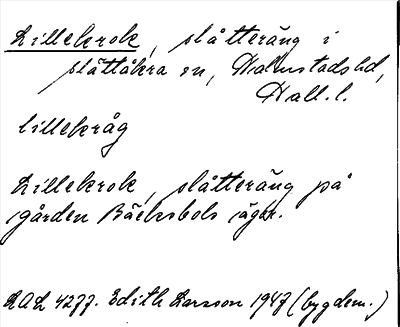 Lillekrok, slåtteräng i
slättåkra sn, Halmstads hd,
Hall. l.
lillekråg
Lillekrok, slåtteräng på
gården Bäcksbols ägor.
LAL 4277. Edith Larsson 1947 (bygdem.)